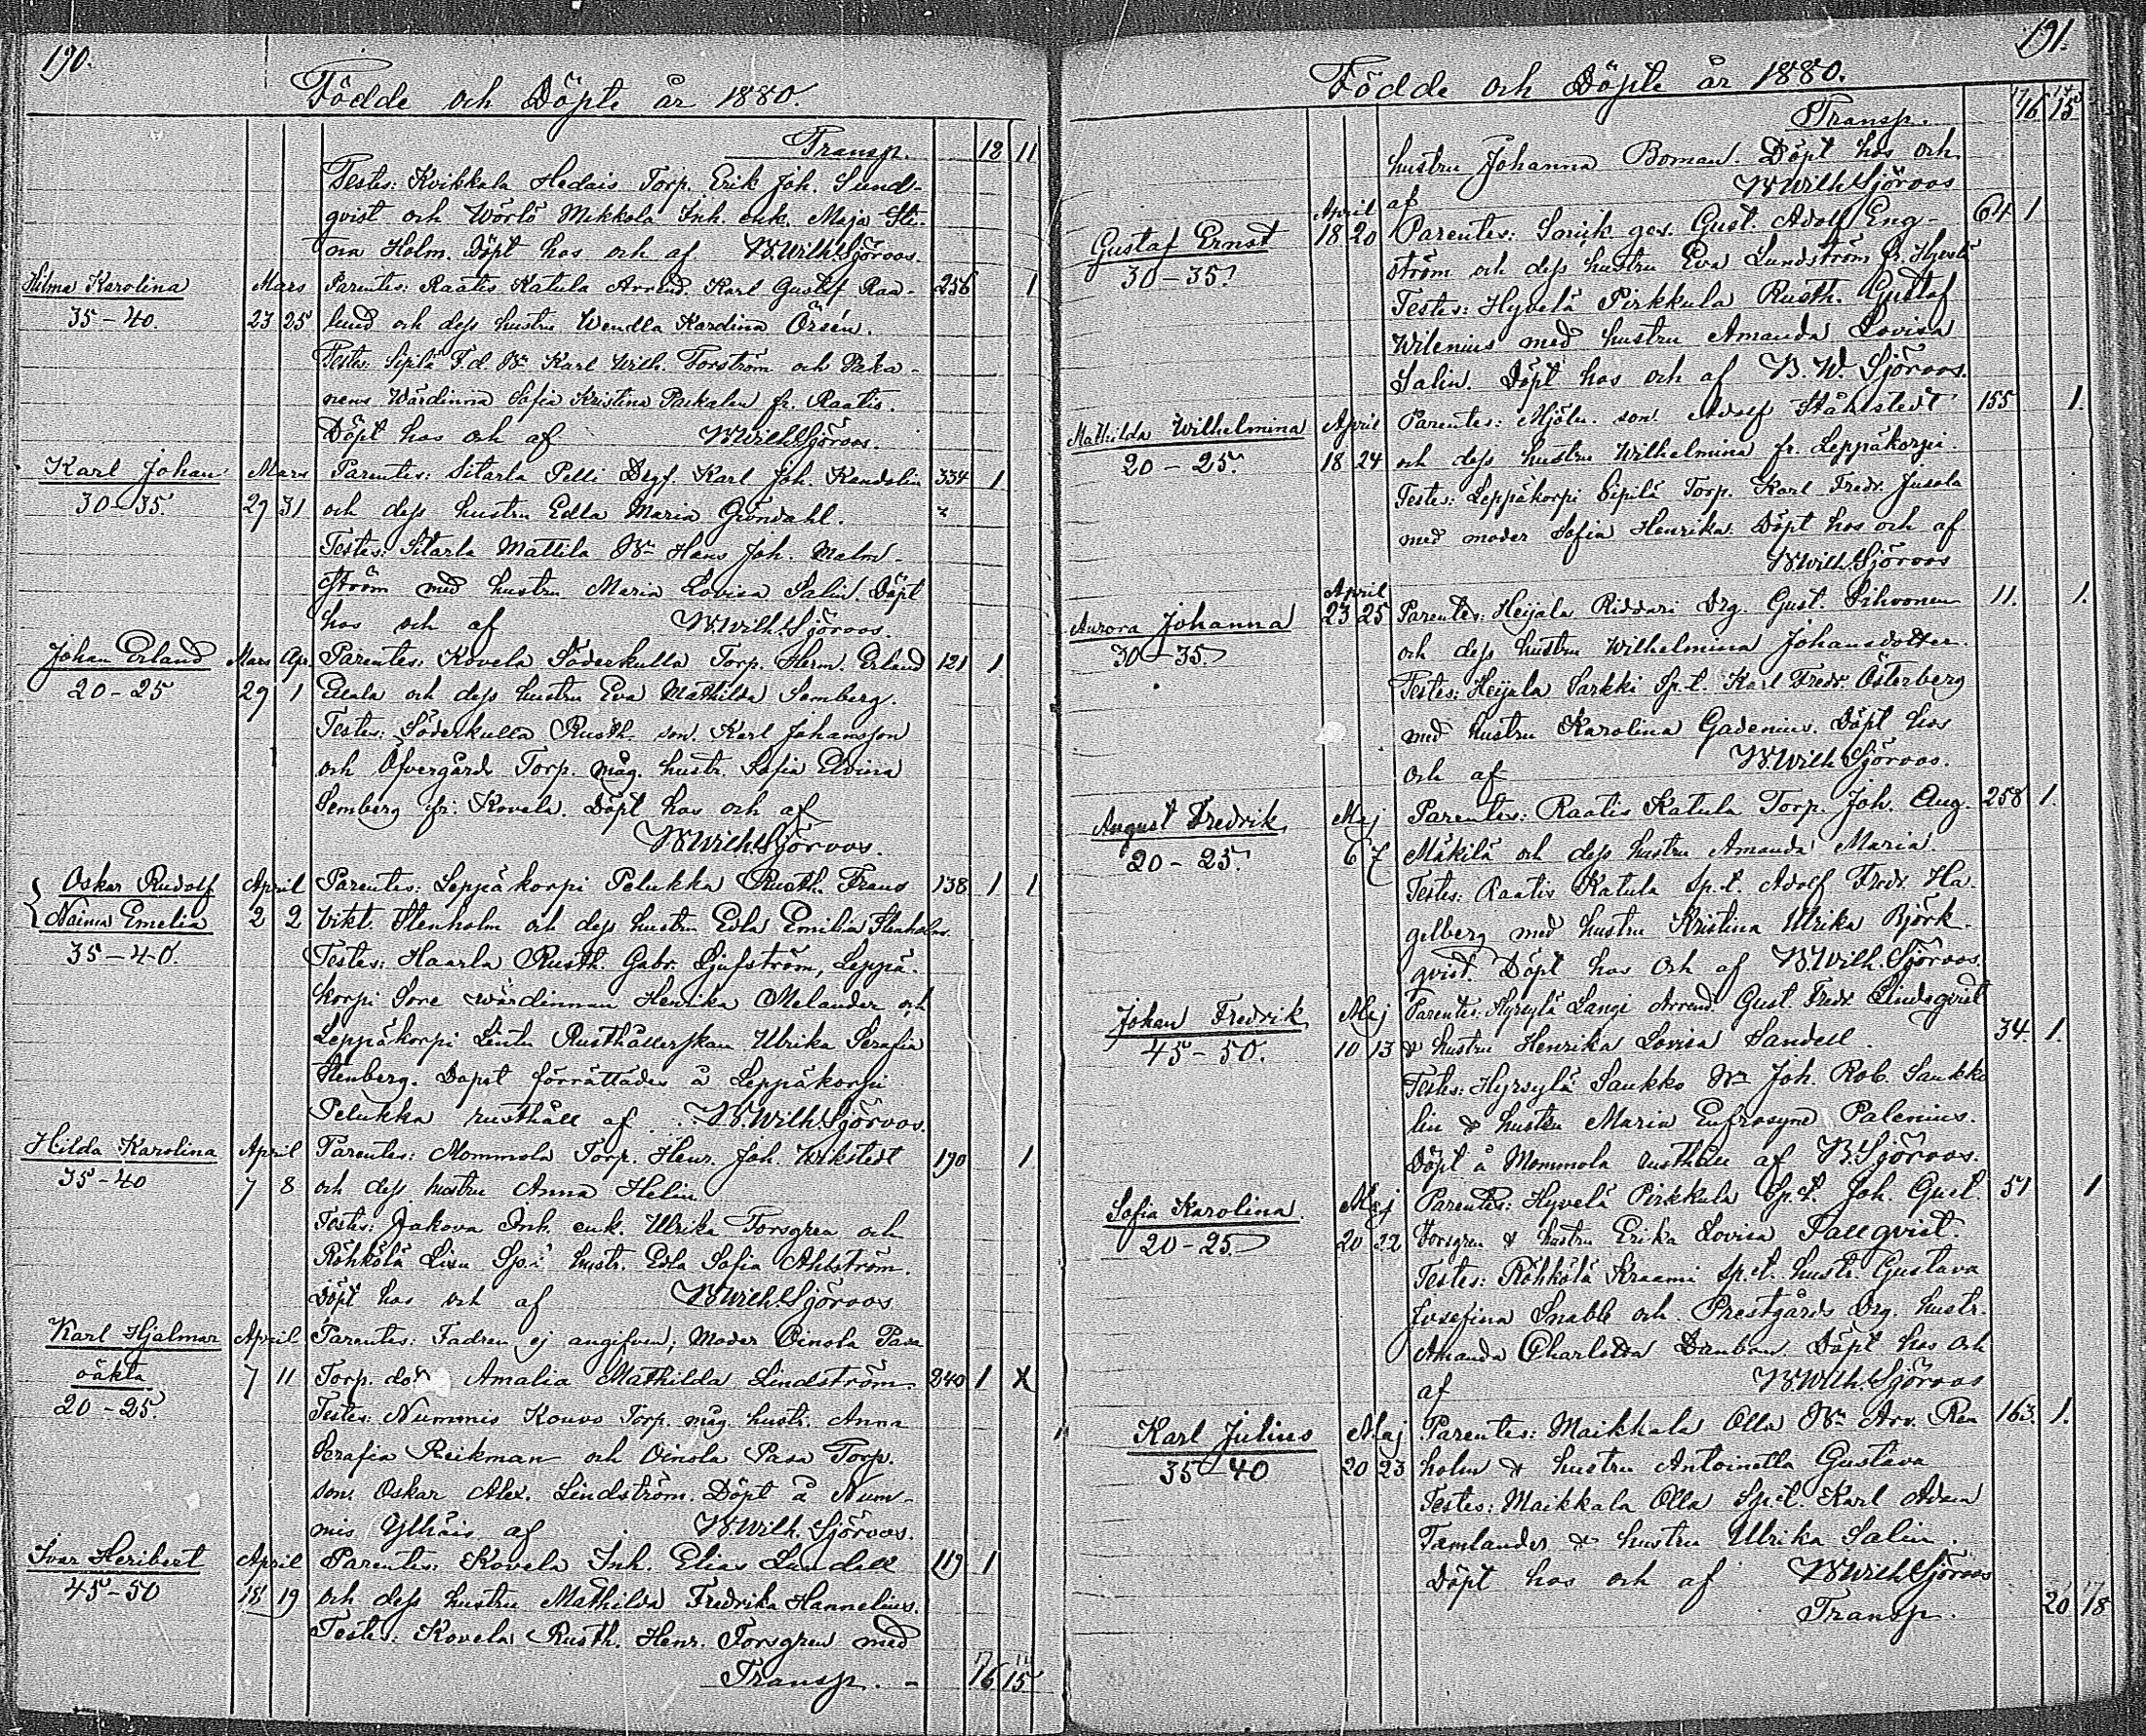 190.
Födde och Döpte år 1880.
Transp. 12 11
Testes: Kvikkala Hedais Torp. Erik Joh. Sund-
qvist och Wörlö Mikkola Inh. enk. Maja Sti-
na Holm. Döpt hos och af W.Wilh.Sjöroos.
Hilma Karolina Mars Parentes: Raatis Katula Arrend. Karl Gustaf Raa- 256 1
35-40. 23 25 lund och dess hustru Wendla Karolina Örsén.
Testes: Sipilä F.d. Karl Wilh. Forström och
Wärdinna Sofia Kristina fr. Raatis.
Döpt hos och af W.Wilh.Sjöroos.
Karl Johan Mars Parentes: Sitarla Pelli Karl Joh. Kandelin 334 1
30-35. 29 31 och dess hustru Edla Maria Gröndahl.
Testes: Sitarla Mattila Hans Joh. Malm-
ström med hustru Maria Lovisa Salin. Döpt
hos och af W.Wilh.Sjöroos.
Johan Erland Mars Apr. Parentes: Kovela Söderkulla Torp. Herm. Erland 121 1.
20-25 29 1 och dess hustru Eva Mathilda Semberg.
Testes: Söderkulla Rusth. son. Karl Johansson
och Öfvergårds Torp. måg. hustr. Sofia Elvira
Semberg fr. Kovela. Döpt hos och af
W.Wilh.Sjöroos.
Oskar Rudolf April Parentes: Leppäkorpi Pelukka Rusth. Frans 138 1 1
Naima Emelia 2 2 Vikt. Stenholm och dess hustru Edla Emilia Stenholm.
35-40. Testes: Haarla Rusth. Gabr. Ljufström, Leppä-
korpi Sore wärdinnan Henrika Melander och
Leppäkorpi Lintu Rusthållerskan Ulrika Serafia
Stenberg. Dopet förrättades å Leppäkorpi
Pelukka rusthåll af W.Wilh.Sjöroos.
Hilda Karolina April Parentes: Mommola Torp. Henr. Joh. Wikstedt 190 1
35-40 7 8 och dess hustru Anna Helin
Testes: Jakova Inh. enk. Ulrika Forsgren och
Röhkölä Lisu Sp.t. hustr. Edla Sofia Ahlström.
Döpt hos och af W.Wilh.Sjöroos
Karl Hjalmar April Parentes: Fadren ej angifven; Moder Oinola Pasa
oäkta 7 11 Torp. dotr Amalia Mathilda Lindström. 240 1 X
20-25. Testes: Nummis Kouvo Torp. måg. hustr. Anna
Serafia Reikman och Oinola Pasa Torp.
son. Oskar Alex. Lindström. Döpt å Num-
mis Ylhäis af W.Wilh.Sjöroos.
Ivar Heribert April Parentes: Kovela Inh. Elias Lundell 119 1
45-50 18 19 och dess hustru Mathilda Fredrika Hannelius.
Testes: Kovela Rusth. Henr. Forsgren med
Transp. 16 15
191.
Födde och Döpte år 1880.
Transp. 16 15
hustru Johanna Boman. Döpt hos och
af W.Wilh.Sjöroos
Gustaf Ernst April 18 20 Parentes: Gust. Adolf Eng- 64 1
30-35. ström och dess hustru Eva Lundström fr. Hyvelä
Testes: Hyvelä Pirkkula Rusth. Gustaf
Wilenius med hustru Amanda Lovisa
Salin. Döpt hos och af W. W. Sjöroos.
Mathilda Wilhelmina April Parentes: Mjöln. son. Adolf Ståhlstedt 155 1.
20-25. 18 24 och dess hustru Wilhelmina fr. Leppäkorpi.
Testes: Leppäkorpi Sipilä Torp. Karl Fredr. Jusola
med moder Sofia Henrika. Döpt hos och af
W.Wilh.Sjöroos
Aurora Johanna April 23 25 Parentes: Heijala Riddari Drg. Gust. Sihvonen 11. 1.
30-35. och dess hustru Wilhelmina Johansdotter.
Testes: Heijala Sarkki Sp.t. Karl Fredr. Österberg
med hustru Karolina Gadenius. Döpt hos
och af W.Wilh.Sjöroos.
August Fredrik Maj Parentes: Raatis Katula Torp. Joh. Aug. 258 1.
20-25. 6 7 Mäkilä och dess hustru Amanda Maria.
Testes: Raatis Katula Sp.t. Adolf Fredr. Ha-
gelberg med hustru Kristina Ulrika Björk-
qvist. Döpt hos och af W.Wilh.Sjöroos.
Johan Fredrik Maj Parentes: Hyrsylä Langi Arrend. Gust. Fredr. Lindqvist
45-50. 10 13 & hustru Henrika Lovisa Sandell. 34. 1.
Testes: Hyrsylä Saukko Joh. Rob. Saukko
lin & hustru Maria Eufrosyne Palenius.
Döpt å Mommola rusthåll af W.Sjöroos.
Sofia Karolina. Maj Parentes: Hyvelä Pirkkula Sp.t. Joh. Gust. 51 1
20-25. 20 22 Forsgren & hustru Erika Lovisa Tallqvist.
Testes: Röhkölä Kraami Sp.t. hustr. Gustava
Josefina Snabb och Prestgårds Drg. hustr.
Amanda Charlotta Danbom. Döpt hos och
af W.Wilh.Sjöroos
Karl Julius Maj Parentes: Maikkala Olla Arv. Ren 163. 1.
35-40 20 23 holm & hustru Antoinetta Gustava
Testes: Maikkala Olla Sp.t. Karl Adam
Tamlander & hustru Ulrika Salin.
Döpt hos och af W.Wilh.Sjöroos
Transp. 20 18